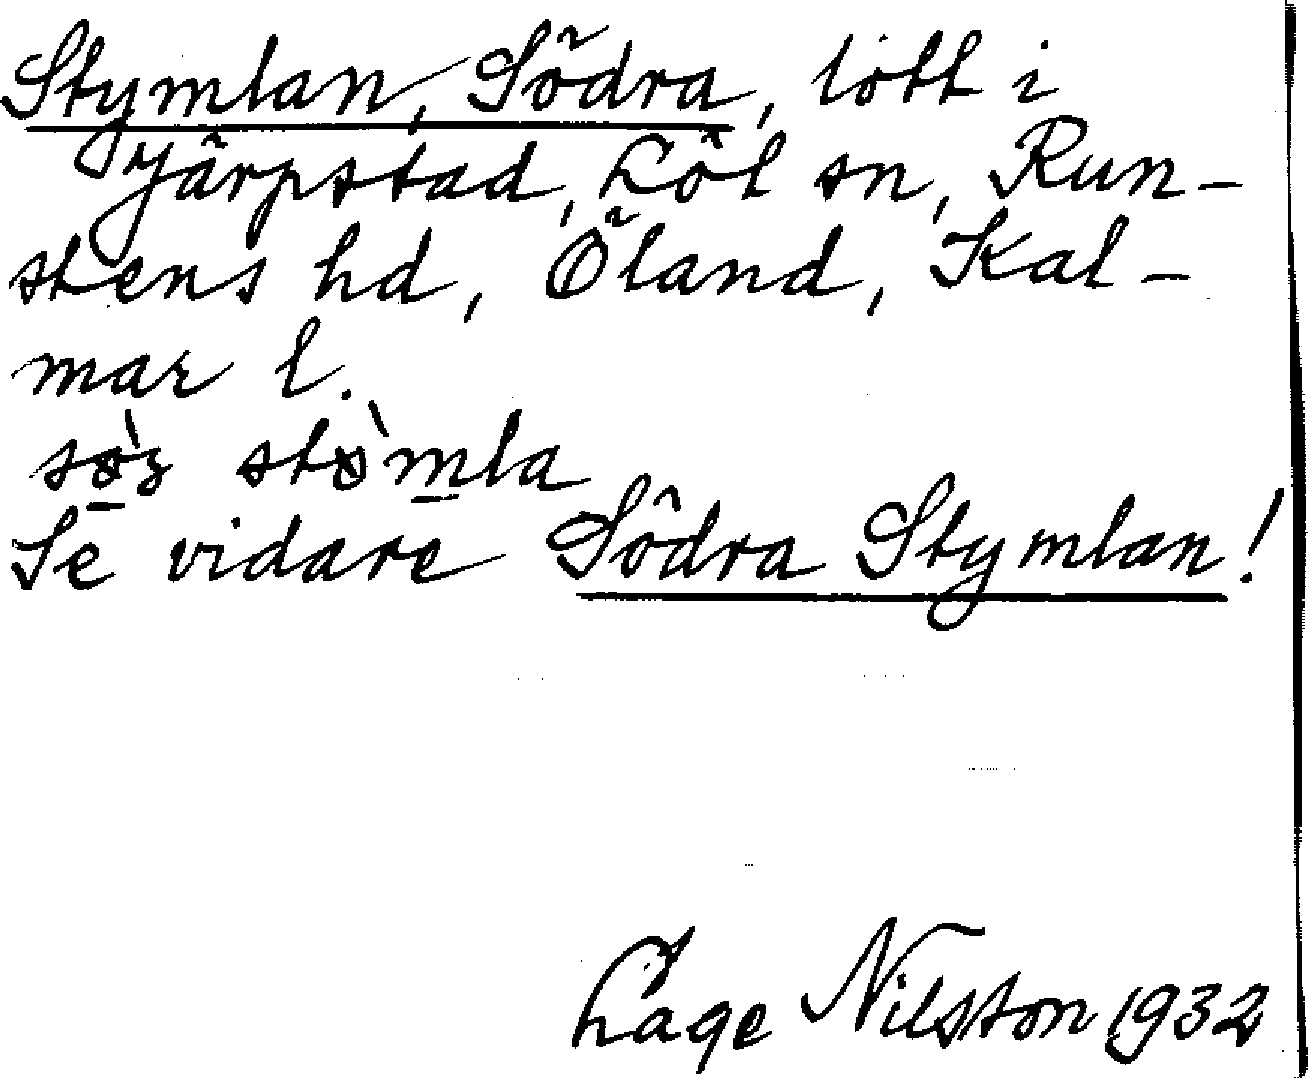 Stymlan, Södra, lott i
Järpstad, Löt sn, Run-
stens hd, Öland, Kal-
mar l.
Se vidare Södra Stymlan!
Lage Nilsson 1932